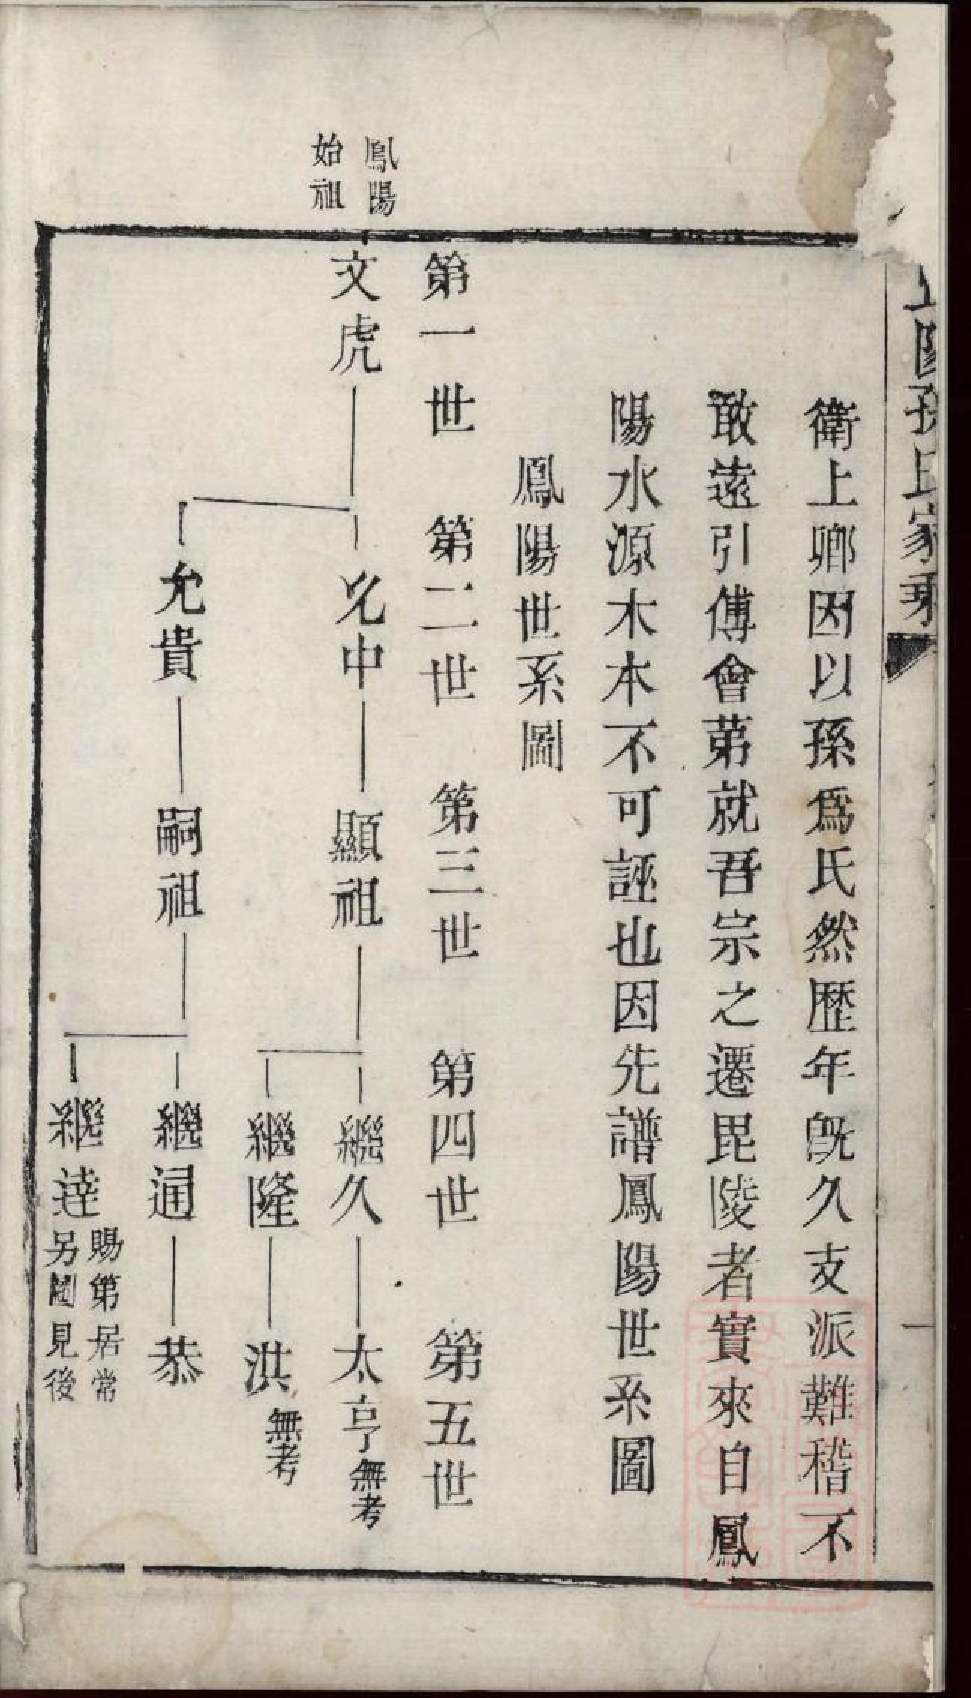 孫氏家乘
衛上卿因以孫爲氏然歷年旣久支派難稽不
敢遠引傅會苐就吾宗之遷毘陵者實來自鳳
陽水源木本不可誣也因先譜鳳陽世系圖
鳳陽世系圖
第一世 第二世 第三世 第四世 第五世
鳳陽
始祖
文虎 允中 顯祖 繼久 太亨 無考
繼隆 洪 無考
允貴 嗣祖 繼通 恭
繼達 賜第居常
另圖見後